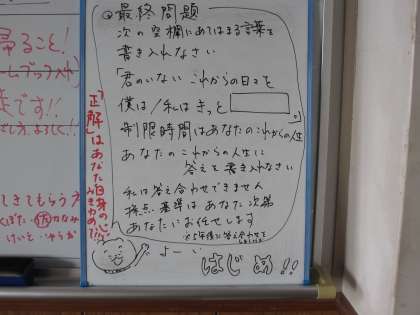 帰ること!
最終問題
次の空欄にあてはまる言葉を
書き入れなさい
「君のいない これからの日々を
僕は/私は きっと
」
制限時間はあなたのこれからの人生
あなたのこれからの人生に
答えを書き入れなさい
私は答え合わせできません
採点基準はあなた次第
あなたにお任せします
よーい
はじめ!!
です!!
「正解」はあなた自身の心
できてもらう